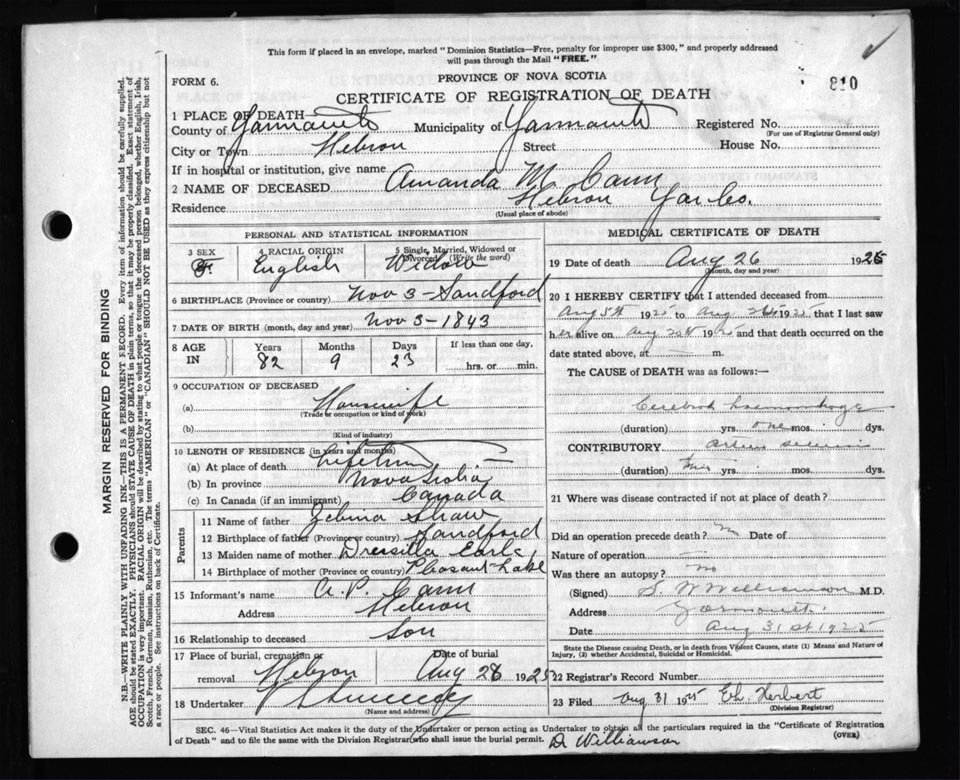 This form if placed in an envelope, marked "Dominion Statistics—Free, penalty for improper use $300," and properly addressed
will pass through the Mail "FREE."
810
FORM 6.
PROVINCE OF NOVA SCOTIA
CERTIFICATE OF REGISTRATION OF DEATH
1 PLACE OF DEATH—
County of Yarmouth Municipality of Yarmouth Registered No.
(For use of Registrar General only)
City or Town Hebron Street House No.
If in hospital or institution, give name
2 NAME OF DECEASED Amanda M Cann
Residence Hebron Yar Co.
(Usual place of abode)
PERSONAL AND STATISTICAL INFORMATION
3 SEX 4 RACIAL ORIGIN 5 Single, Married, Widowed or
Divorced (Write the word)
F. English Widow
6 BIRTHPLACE (Province or country) Nov 3 - Sandford
7 DATE OF BIRTH (month, day and year) Nov 3 - 1843
8 AGE IN Years Months Days If less than one day,
82 9 23 hrs. or min.
9 OCCUPATION OF DECEASED
(a) Housewife
(Trade or occupation or kind of work)
(b)
(Kind of industry)
10 LENGTH OF RESIDENCE (in years and months)
(a) At place of death Lifetime
(b) In province Nova Scotia
(c) In Canada (if an immigrant) Canada
Parents
11 Name of father Zebina Shaw
12 Birthplace of father (Province or country) Sandford
13 Maiden name of mother Drersilla Earl
14 Birthplace of mother (Province or country) Pleasant Lake
15 Informant's name A. P. Cann
Address Hebron
16 Relationship to deceased Son
17 Place of burial, cremation or removal Hebron Date of burial Aug 28 1925
18 Undertaker
(Name and address)
MEDICAL CERTIFICATE OF DEATH
19 Date of death Aug 26 1925
(Month, day and year)
20 I HEREBY CERTIFY that I attended deceased from
Aug 5th 192 to Aug 192 that I last saw
her alive on Aug 20th 192 and that death occurred on the
date stated above, at m.
The CAUSE of DEATH was as follows:—
Cerebral haemorrhage
(duration) yrs. one mos. dys.
CONTRIBUTORY
(duration) yrs. mos. dys.
21 Where was disease contracted if not at place of death?
Did an operation precede death? no Date of
Nature of operation
Was there an autopsy? no
(Signed) S. W Williamson M.D.
Address Yarmouth.
Date Aug 31st 1925
State the Disease causing Death, or in death from Violent Causes, state (1) Means and Nature of
Injury, (2) whether Accidental, Suicidal or Homicidal.
22 Registrar's Record Number
23 Filed Aug 31 1925 Eh. Herbert
(Division Registrar)
SEC. 46—Vital Statistics Act makes it the duty of the Undertaker or person acting as Undertaker to obtain all the particulars required in the "Certificate of Registration
of Death" and to file the same with the Division Registrar who shall issue the burial permit.
(OVER)
Dr Williamson
MARGIN RESERVED FOR BINDING
N.B.—WRITE PLAINLY WITH UNFADING INK—THIS IS A PERMANENT RECORD. Every item of information should be carefully supplied.
AGE should be stated EXACTLY. PHYSICIANS should STATE CAUSE OF DEATH in plain terms, so that it may be properly classified. Exact statement of
OCCUPATION is very important. RACIAL ORIGIN will be described by stating to what people or tongue the deceased person belonged, whether English, Irish,
Scotch, French, German, Russian, Ruthenian, etc. The terms "AMERICAN" or "CANADIAN" SHOULD NOT BE USED as they express citizenship but not
a race or people. See instructions on back of Certificate.